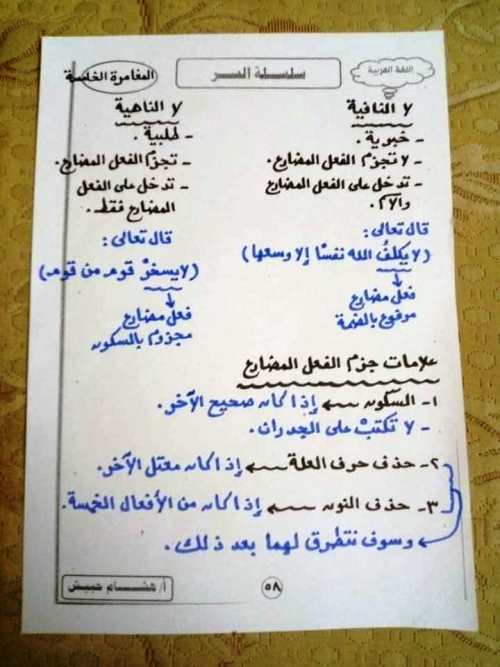 اللغة العربية
سلسلة السر
المغامرة الخامسة
لا النافية
- خبرية.
- لا تجزم الفعل المضارع.
- تدخل على الفعل المضارع
والاسم.
قال تعالى:
(لا يكلفُ الله نفسًا إلا وسعها)
فعل مضارع
مرفوع بالضمة
لا الناهية
- طلبية.
- تجزم الفعل المضارع.
- تدخل على الفعل
المضارع فقط.
قال تعالى:
(لا يسخرْ قوم من قوم)
فعل مضارع
مجزوم بالسكون
علامات جزم الفعل المضارع
١- السكون ← إذا كان صحيح الآخر.
- لا تكتبْ على الجدران.
٢- حذف حرف العلة ← إذا كان معتل الآخر.
٣- حذف النون ← إذا كان من الأفعال الخمسة.
وسوف نتطرق لهما بعد ذلك.
٥٨
أ/ هشام حبيش